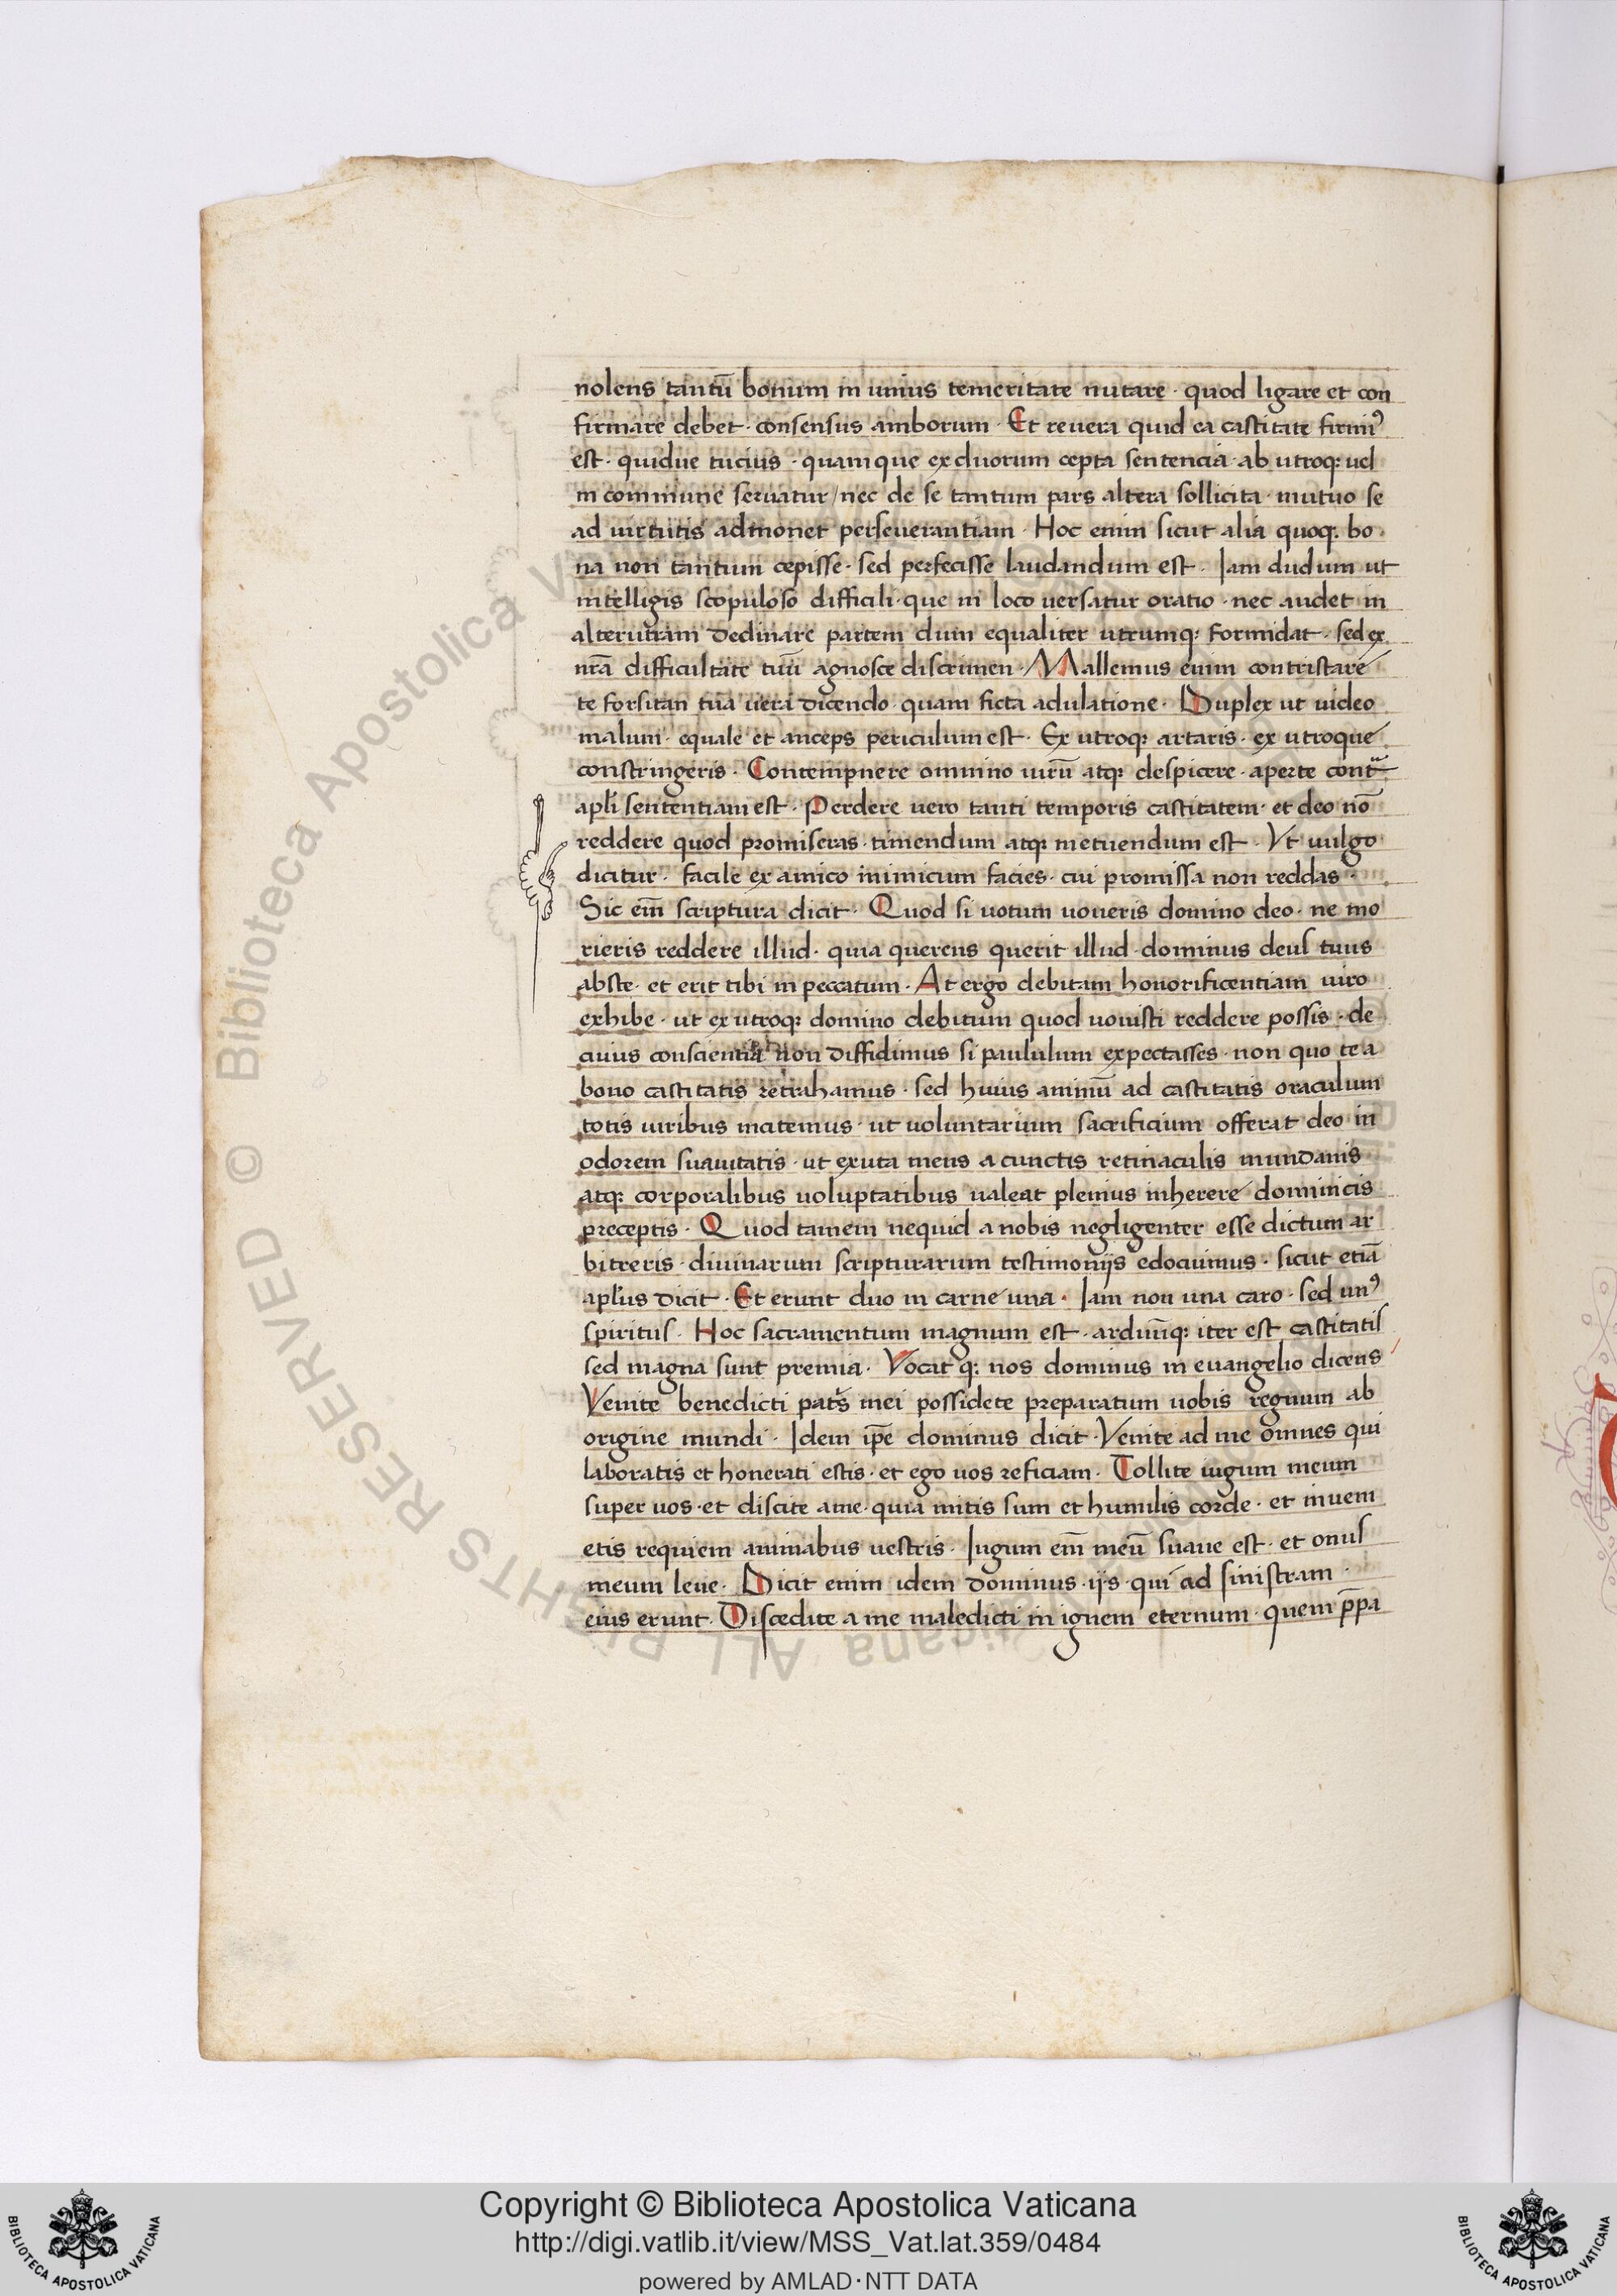 nolens tantū bonum in unius temeritate nutare · quod ligare et con
firmare debet · consensus amborum · Et reuera quid ea castitate firmi⁹
est · quidue tucius · quamque ex duorum cepta sentencia · ab utroq; uel
in commune seruatur / nec de se tantum pars altera sollicita · mutuo se
ad uirtutis admonet perseuerantiam · Hoc enim sicut alia quoq; bo
na non tantum cepisse · sed perfecisse laudandum est · Iam dudum ut
intelligis scopuloso difficili · que in loco uersatur oratio · nec audet in
alterutram declinare partem dum equaliter utrumq; formidat · sed ex
nr̄a difficultate tuū agnosce discrimen · Mallemus enim contristare
te forsitan tua uera dicendo quam ficta adulatione · Duplex ut uideo
malum · equale et anceps periculum est · Ex utroq; artaris · ex utroque
constringeris · Contempnere omnino uirū atq; despicere · aperte contᵃ
apl̄i sententiam est · Perdere uero tanti temporis castitatem · et deo nō
reddere quod promiseras · timendum atq; metuendum est · Vt uulgo
dicitur · facile ex amico inimicum facies · cui promissa non reddas ·
Sic em̄ scriptura dicit · Quod si uotum uoueris domino deo · ne mo
rieris reddere illud · quia querens querit illud · dominus deus tuus
abste · et erit tibi in peccatum · At ergo debitam honorificentiam uiro
exhibe · ut ex utroq; domino debitum quod uouisti reddere possis · de
cuius conscientia non diffidimus si paululum expectasses · non quo te a
bono castitatis retrahamus · sed huius animū ad castitatis oraculum
totis uiribus incitemus · ut uoluntarium sacrificium offerat deo in
odorem suauitatis · ut exuta mens a cunctis retinaculis mundanis
atq; corporalibus uoluptatibus ualeat plenius inherere dominicis
preceptis · Quod tamem nequid a nobis negligenter esse dictum ar
bitreris · diuinarum scripturarum testimoniis edocuimus · sicut etiā
apl̄us dicit · Et erunt duo in carne una · Iam non una caro · sed un⁹
spiritus · Hoc sacramentum magnum est · arduūq; iter est castitatis
sed magna sunt premia · Vocat q; nos dominus in euangelio dicens
Venite benedicti pat̄s mei possidete preparatum uobis regnum ab
origine mundi · Idem ip̄e dominus dicit · Venite ad me omnes qui
laboratis et honerati estis · et ego uos reficiam · Tollite iugum meum
super uos · et discite a me · quia mitis sum et humilis corde · et inueni
etis requiem animabus uestris · Iugum em̄ meū suaue est · et onus
meum leue · Dicit enim idem dominus · iis · qui ad sinistram ·
eius erunt · Discedite a me maledicti in ignem eternum · quem p̄pa
Copyright © Biblioteca Apostolica Vaticana
http://digi.vatlib.it/view/MSS_Vat.lat.359/0484
powered by AMLAD·NTT DATA